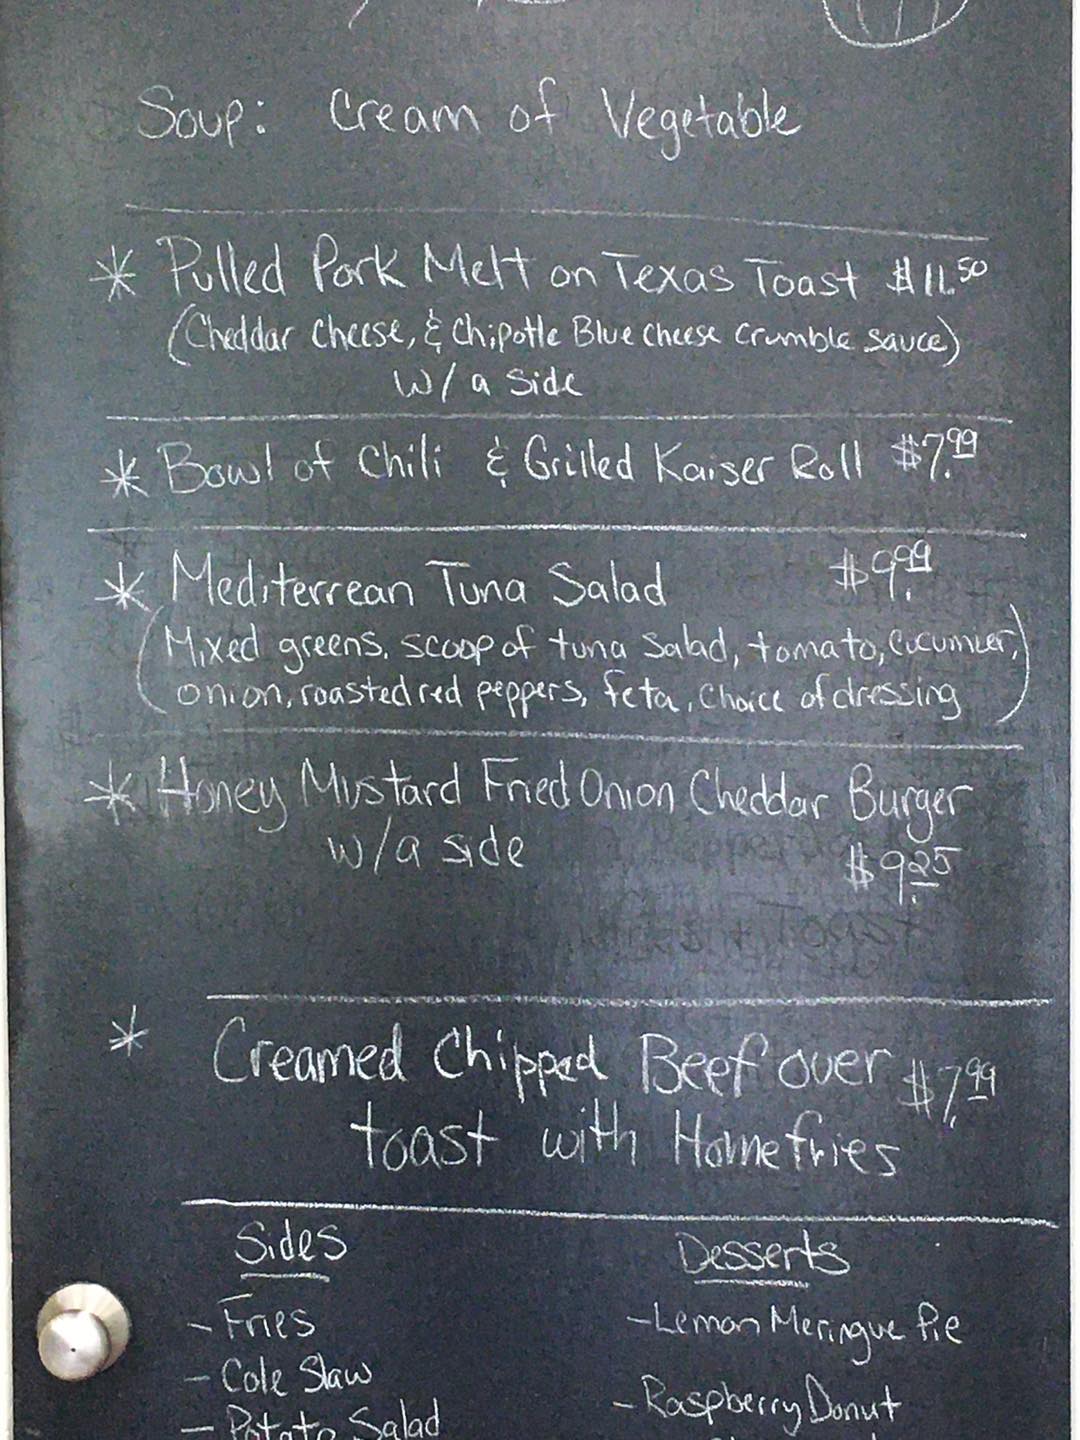 Soup: Cream of Vegetable
* Pulled Pork Melt on Texas Toast $11.50
(Cheddar Cheese, & Chipotle Blue Cheese Crumble Sauce)
w/ a Side
* Bowl of Chili & Grilled Kaiser Roll $7.99
* Mediterrean Tuna Salad $9.99
(Mixed greens, scoop of tuna salad, tomato,
onion, roasted red peppers, feta, choice of dressing)
* Honey Mustard Fried Onion Cheddar Burger
w/a side $9.25
* Creamed Chipped Beef over $7.99
toast with Homefries
Sides
- Fries
- Cole Slaw
- Potato Salad
Desserts
- Lemon Meringue Pie
- Raspberry Donut